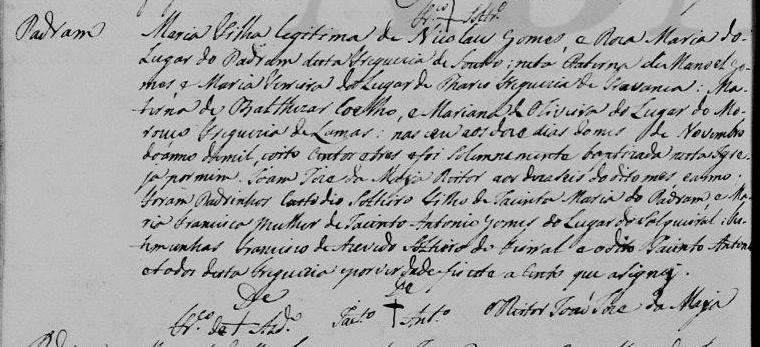 Fr.co Soltr.o
Padram Maria Filha legitima de Nicolau Gomes, e Rosa Maria do
Lugar do Padram desta Freguezia de Souto: neta Paterna de Manoel Go-
mes e Maria Pereira do Lugar de Freguezia de Travanca: Ma-
terna de Balthezar Coelho, e Mariana de Oliveira do Lugar do Mo-
rouço Freguezia de Lamas: nasceu aos doze dias do mes de Novembro
do anno de mil, oito centos e tres e foi solemnemente bautizada nesta Igre-
ja por mim Joam Joze da Maja Reitor aos dezaseis do dito mes e anno:
foram Padrinhos Custodio Solteiro Filho de Jacinta Maria do Padram, e Ma-
ria Francisca mulher de Jacinto Antonio Gomes do Lugar de tes-
timunhas Francisco de Azevedo Solteiro de e o dito Jacinto Antonio
e todos desta Freguezia e por verdade fis este acento que asigney.
De De
Fr.co de + Azd.o Jac.to + Ant.o O Reitor Joaõ Joze da Maja